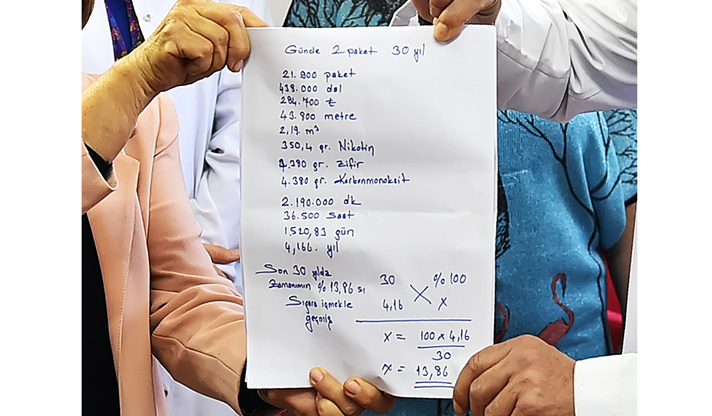 Günde 2 paket 30 yıl
21.900 paket
438.000 dal
284.700 ₺
43.800 metre
2,19 m³
350,4 gr. Nikotin
4.380 gr. Zifir
4.380 gr. Karbonmonoksit
2.190.000 dk
36.500 saat
1520,83 gün
4,166. yıl
Son 30 yılda
Zamanımın % 13,86 sı
Sigara içmekle
geçmiş
30 % 100
4,16 x
x = 100 x 4,16
30
x = 13,86